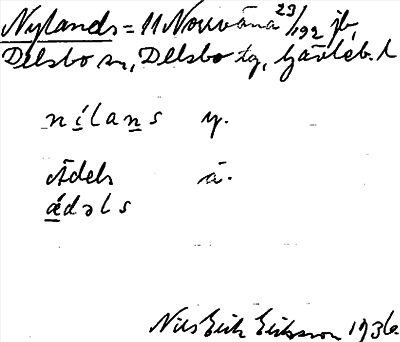 Nylands = 11 Norrväna 23/192 jb,
Delsbo sn, Delsbo tg, Gävleb. l
nílans y.
Ädels ä.
ǽdəls
Nils Erik Eriksson 1936